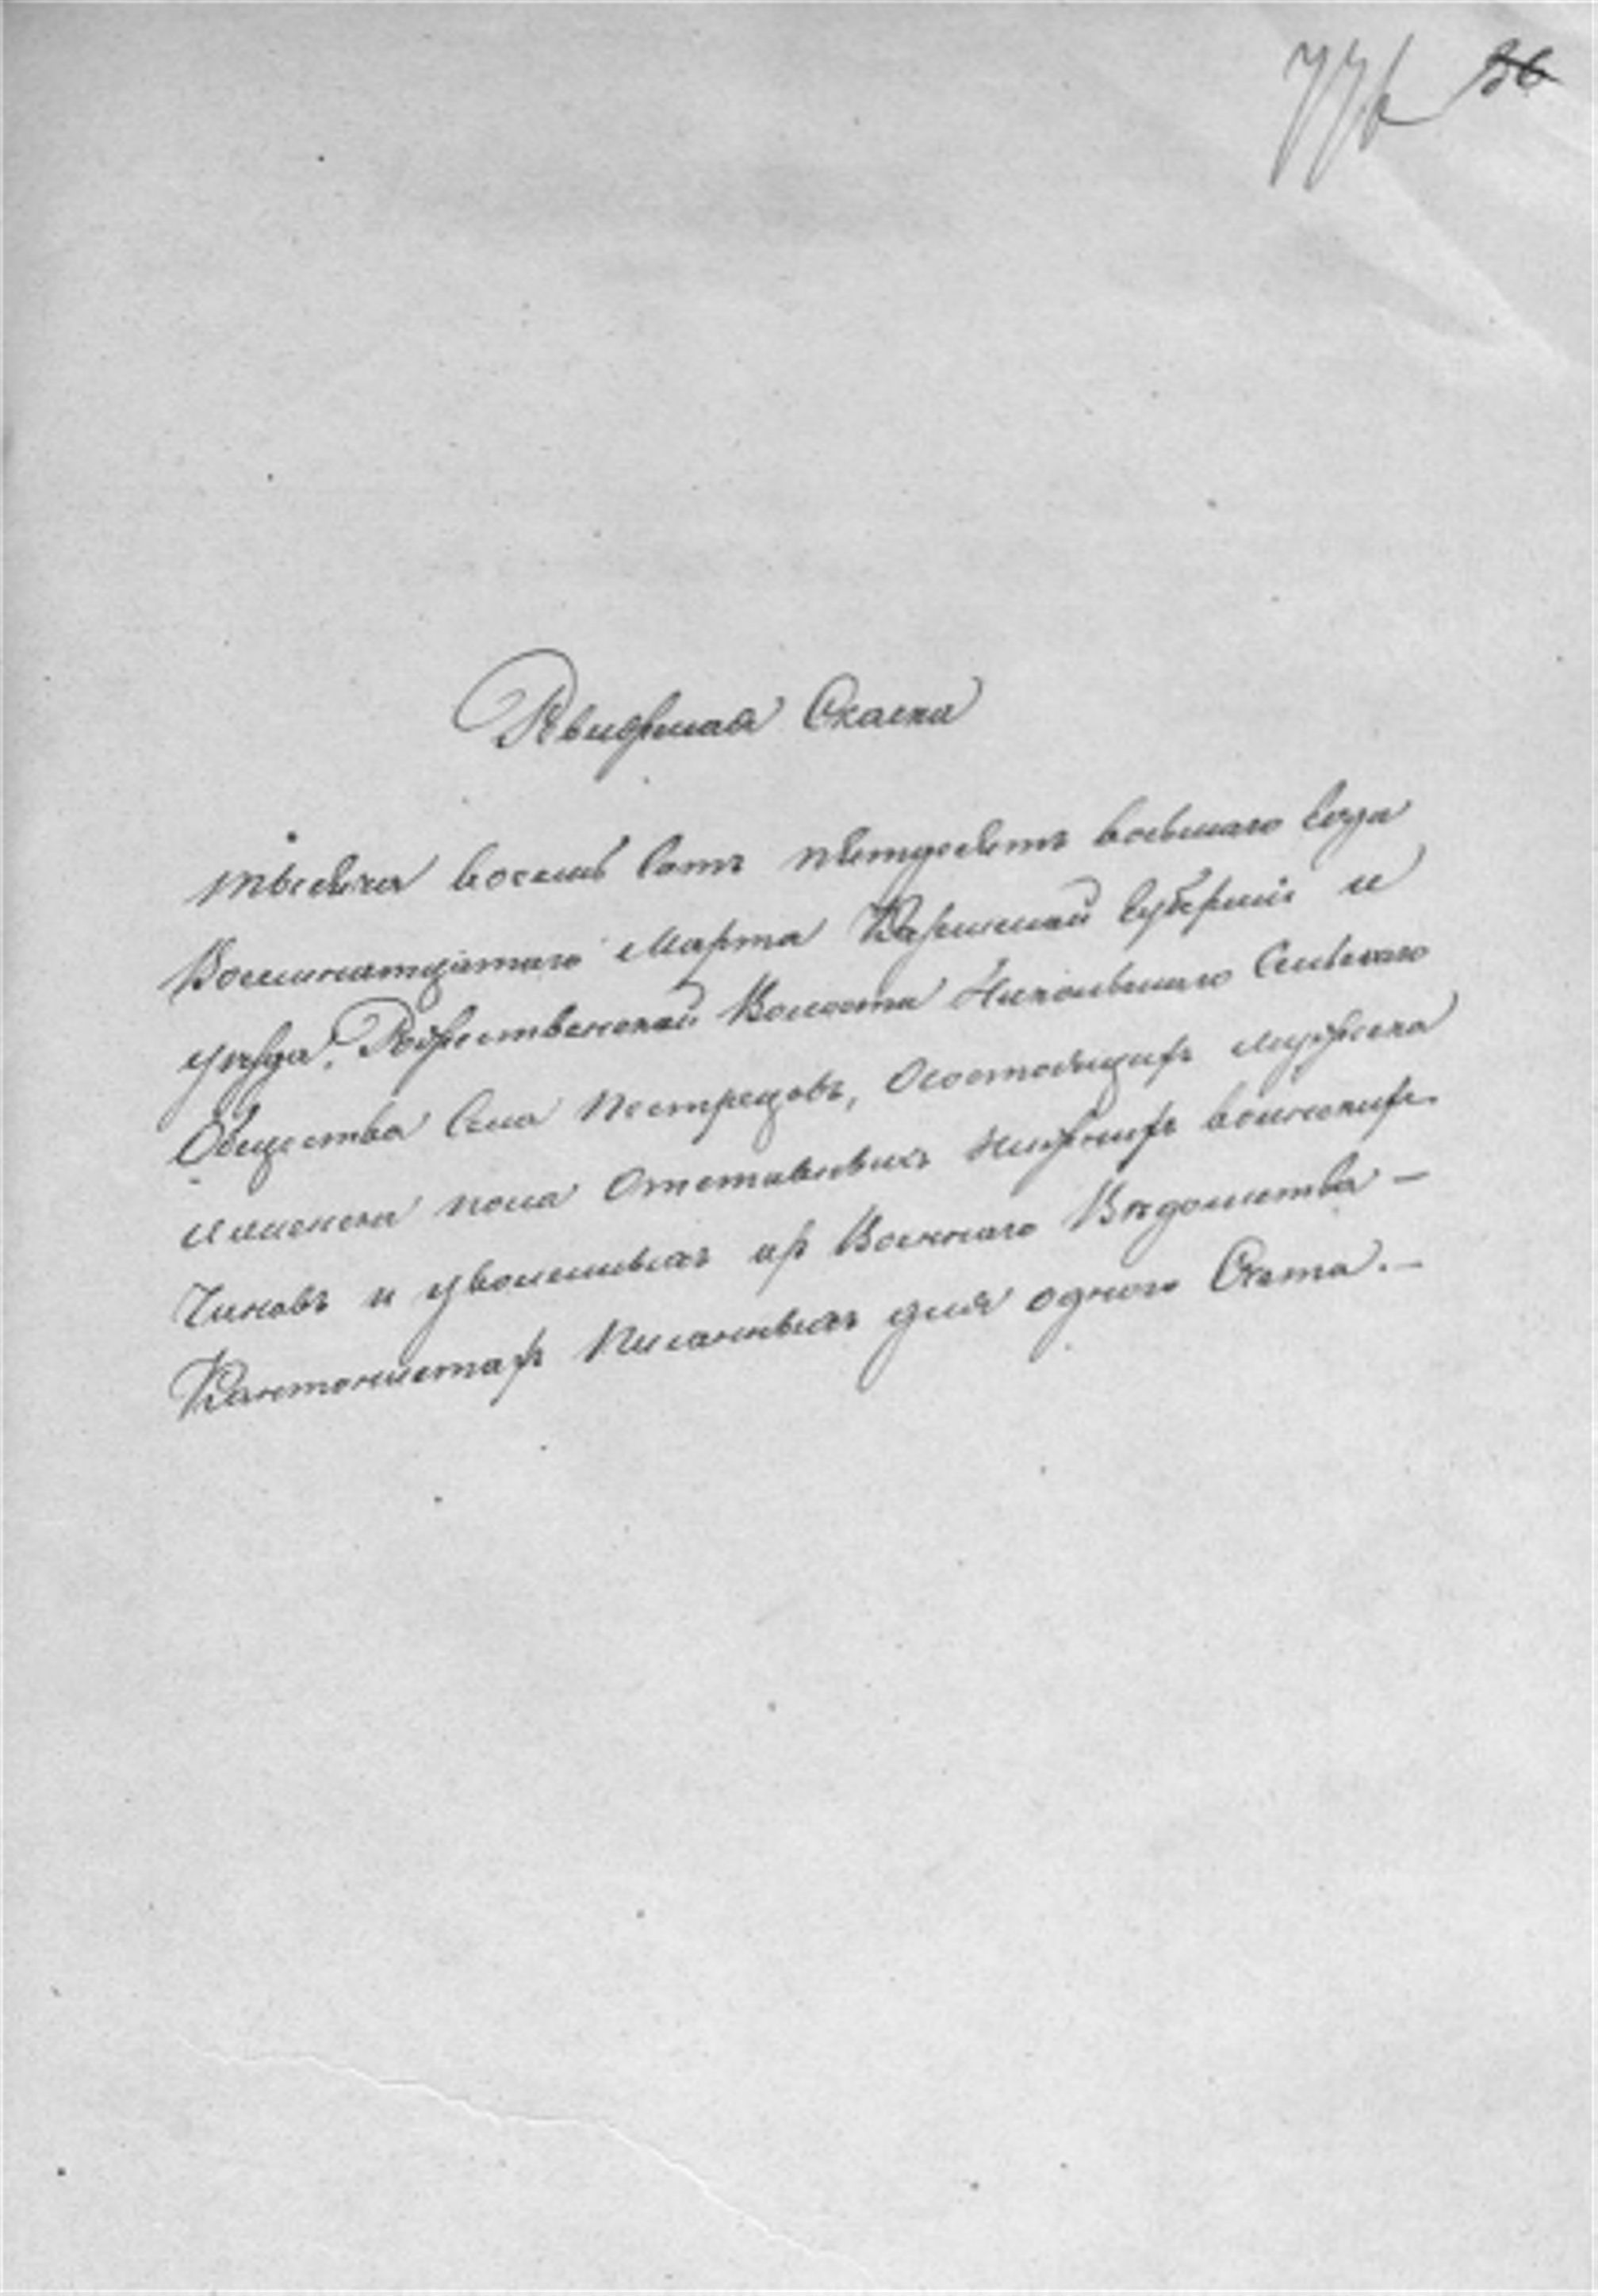 36
Ревизская Скаска
тысяча восемь сотъ пятдесятъ восьмаго года
Восемнатцатаго Марта Казанской губерніи и
уезда. Рождественской Волости Никольскаго Сельскаго
Общества Села Пестрецовъ, Осостоящихъ мужеска
и женска пола Отставныхъ нижнихъ воинскихъ
Чиновъ и уволенныхъ изъ Военнаго Ведомства -
Кантонистахъ Писанныхъ для одного Счета. -